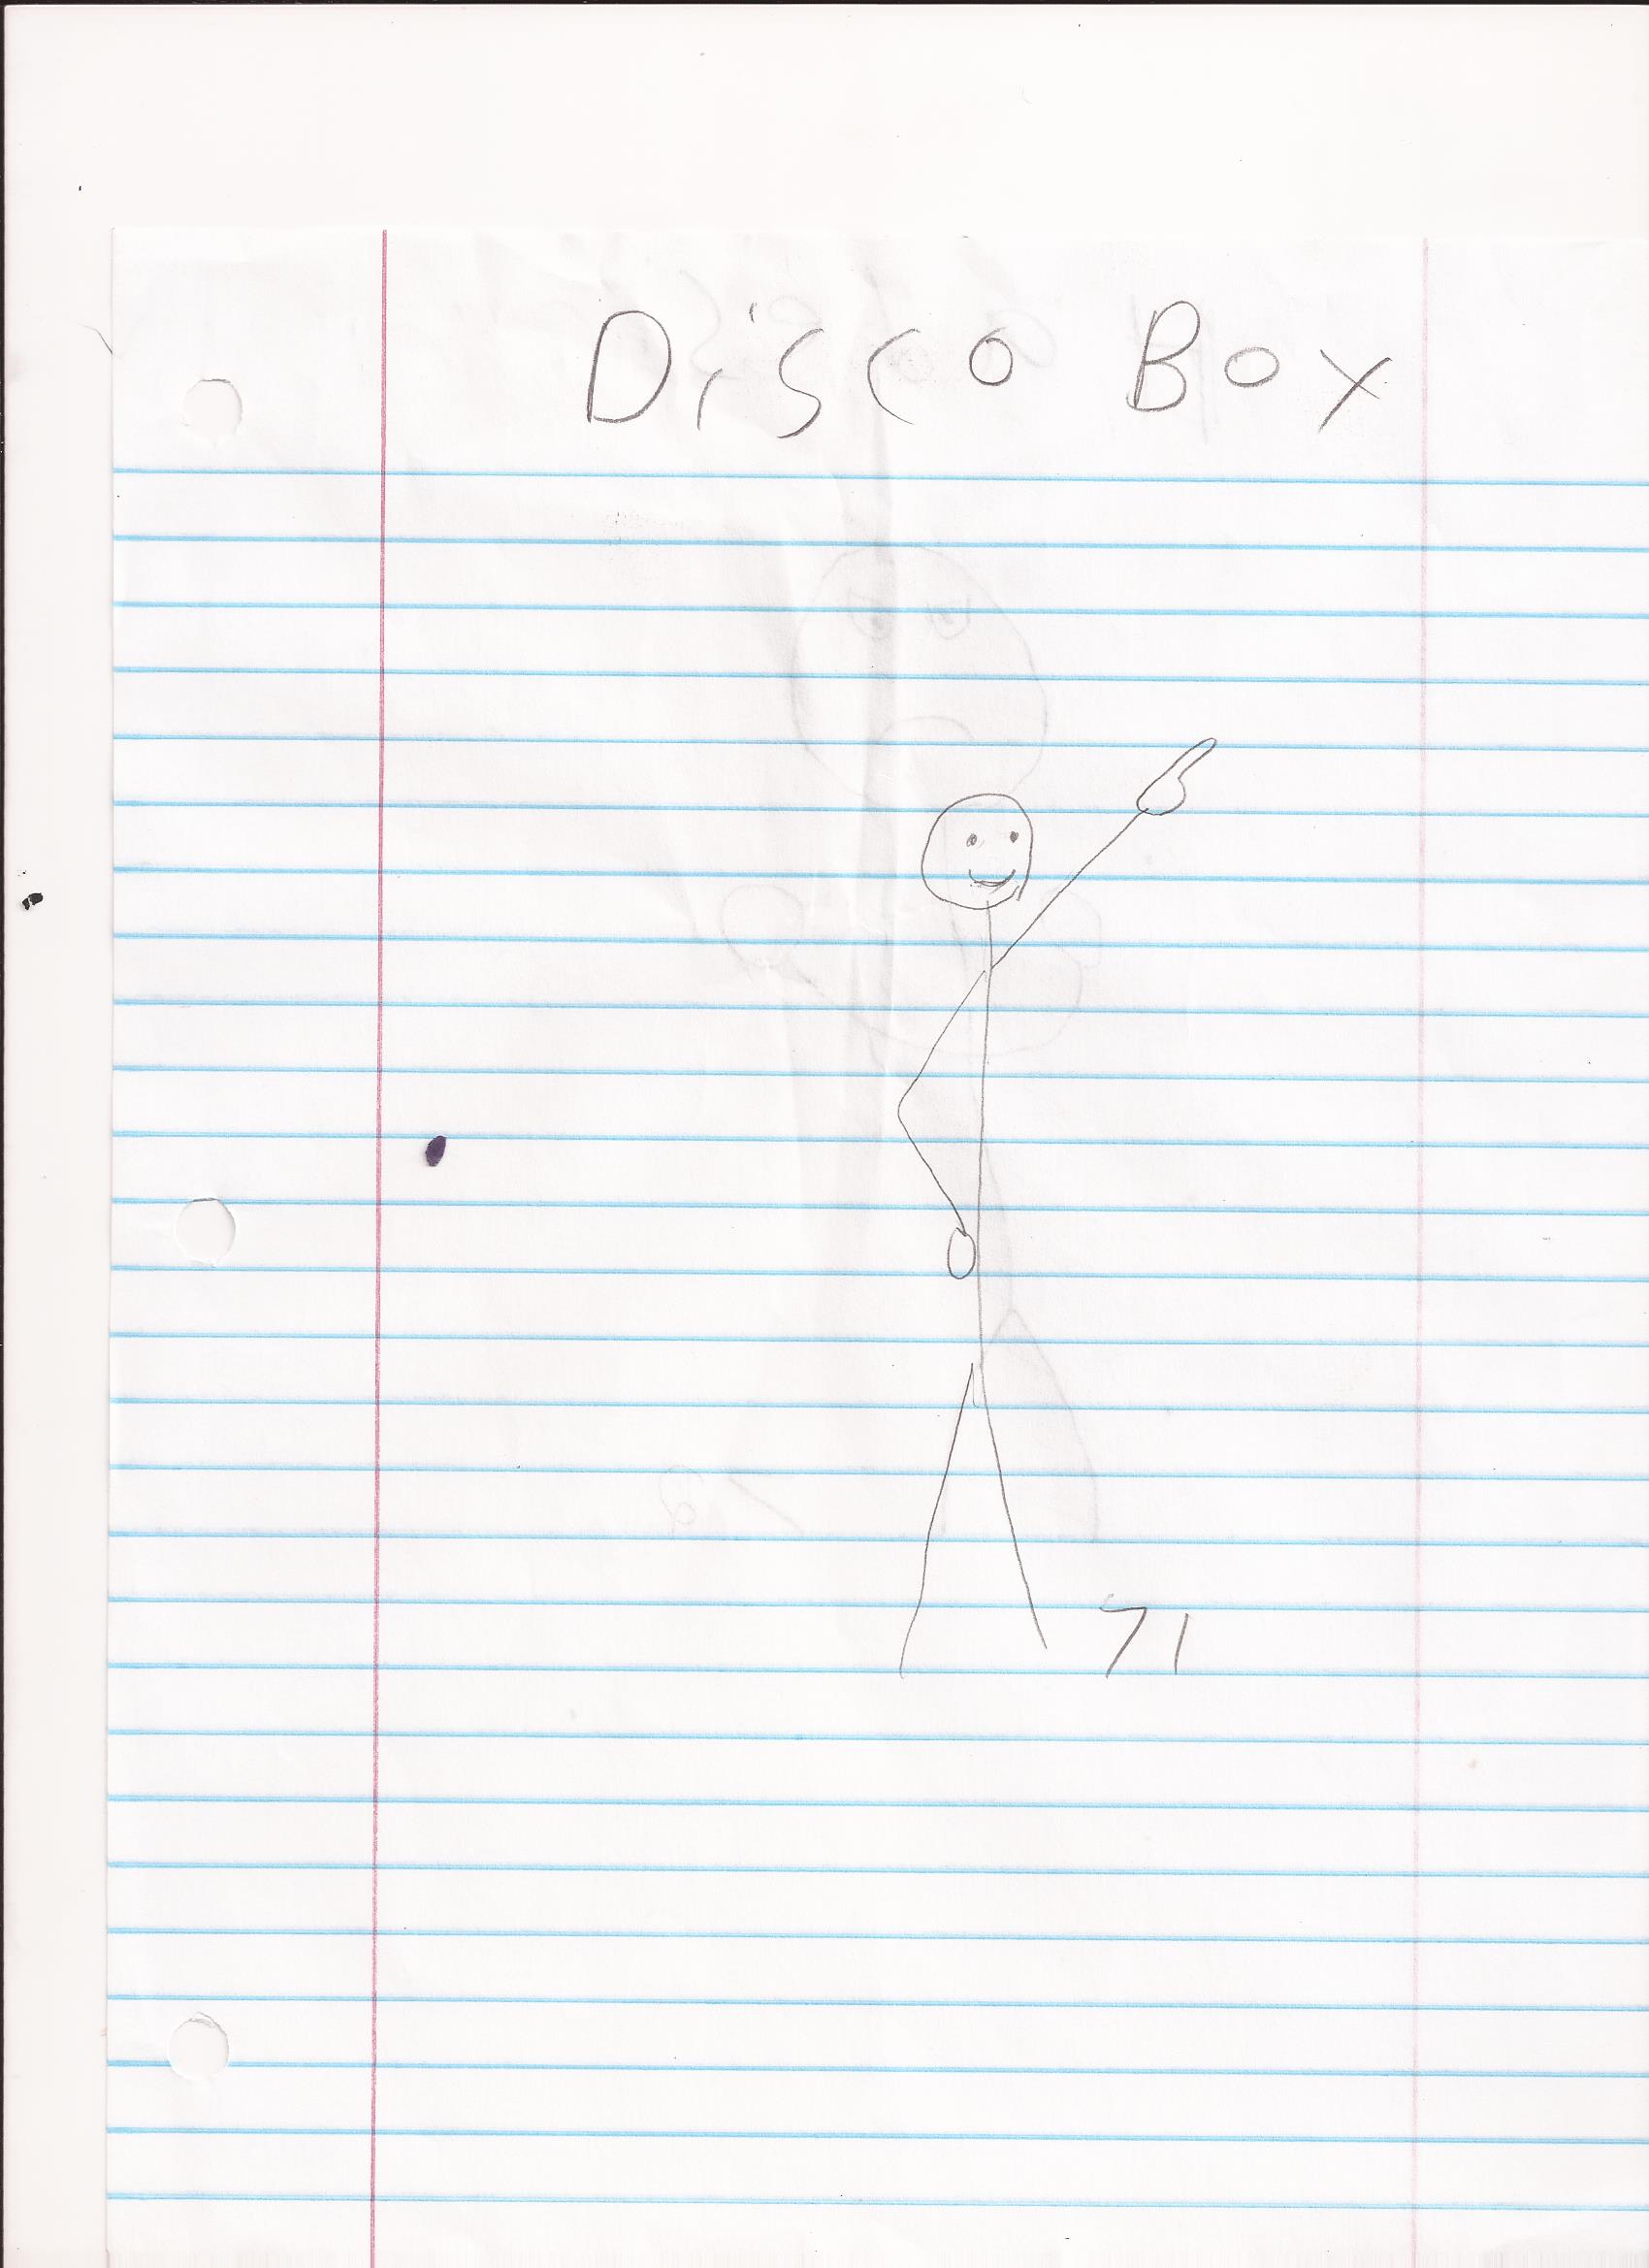 Disco Box
71